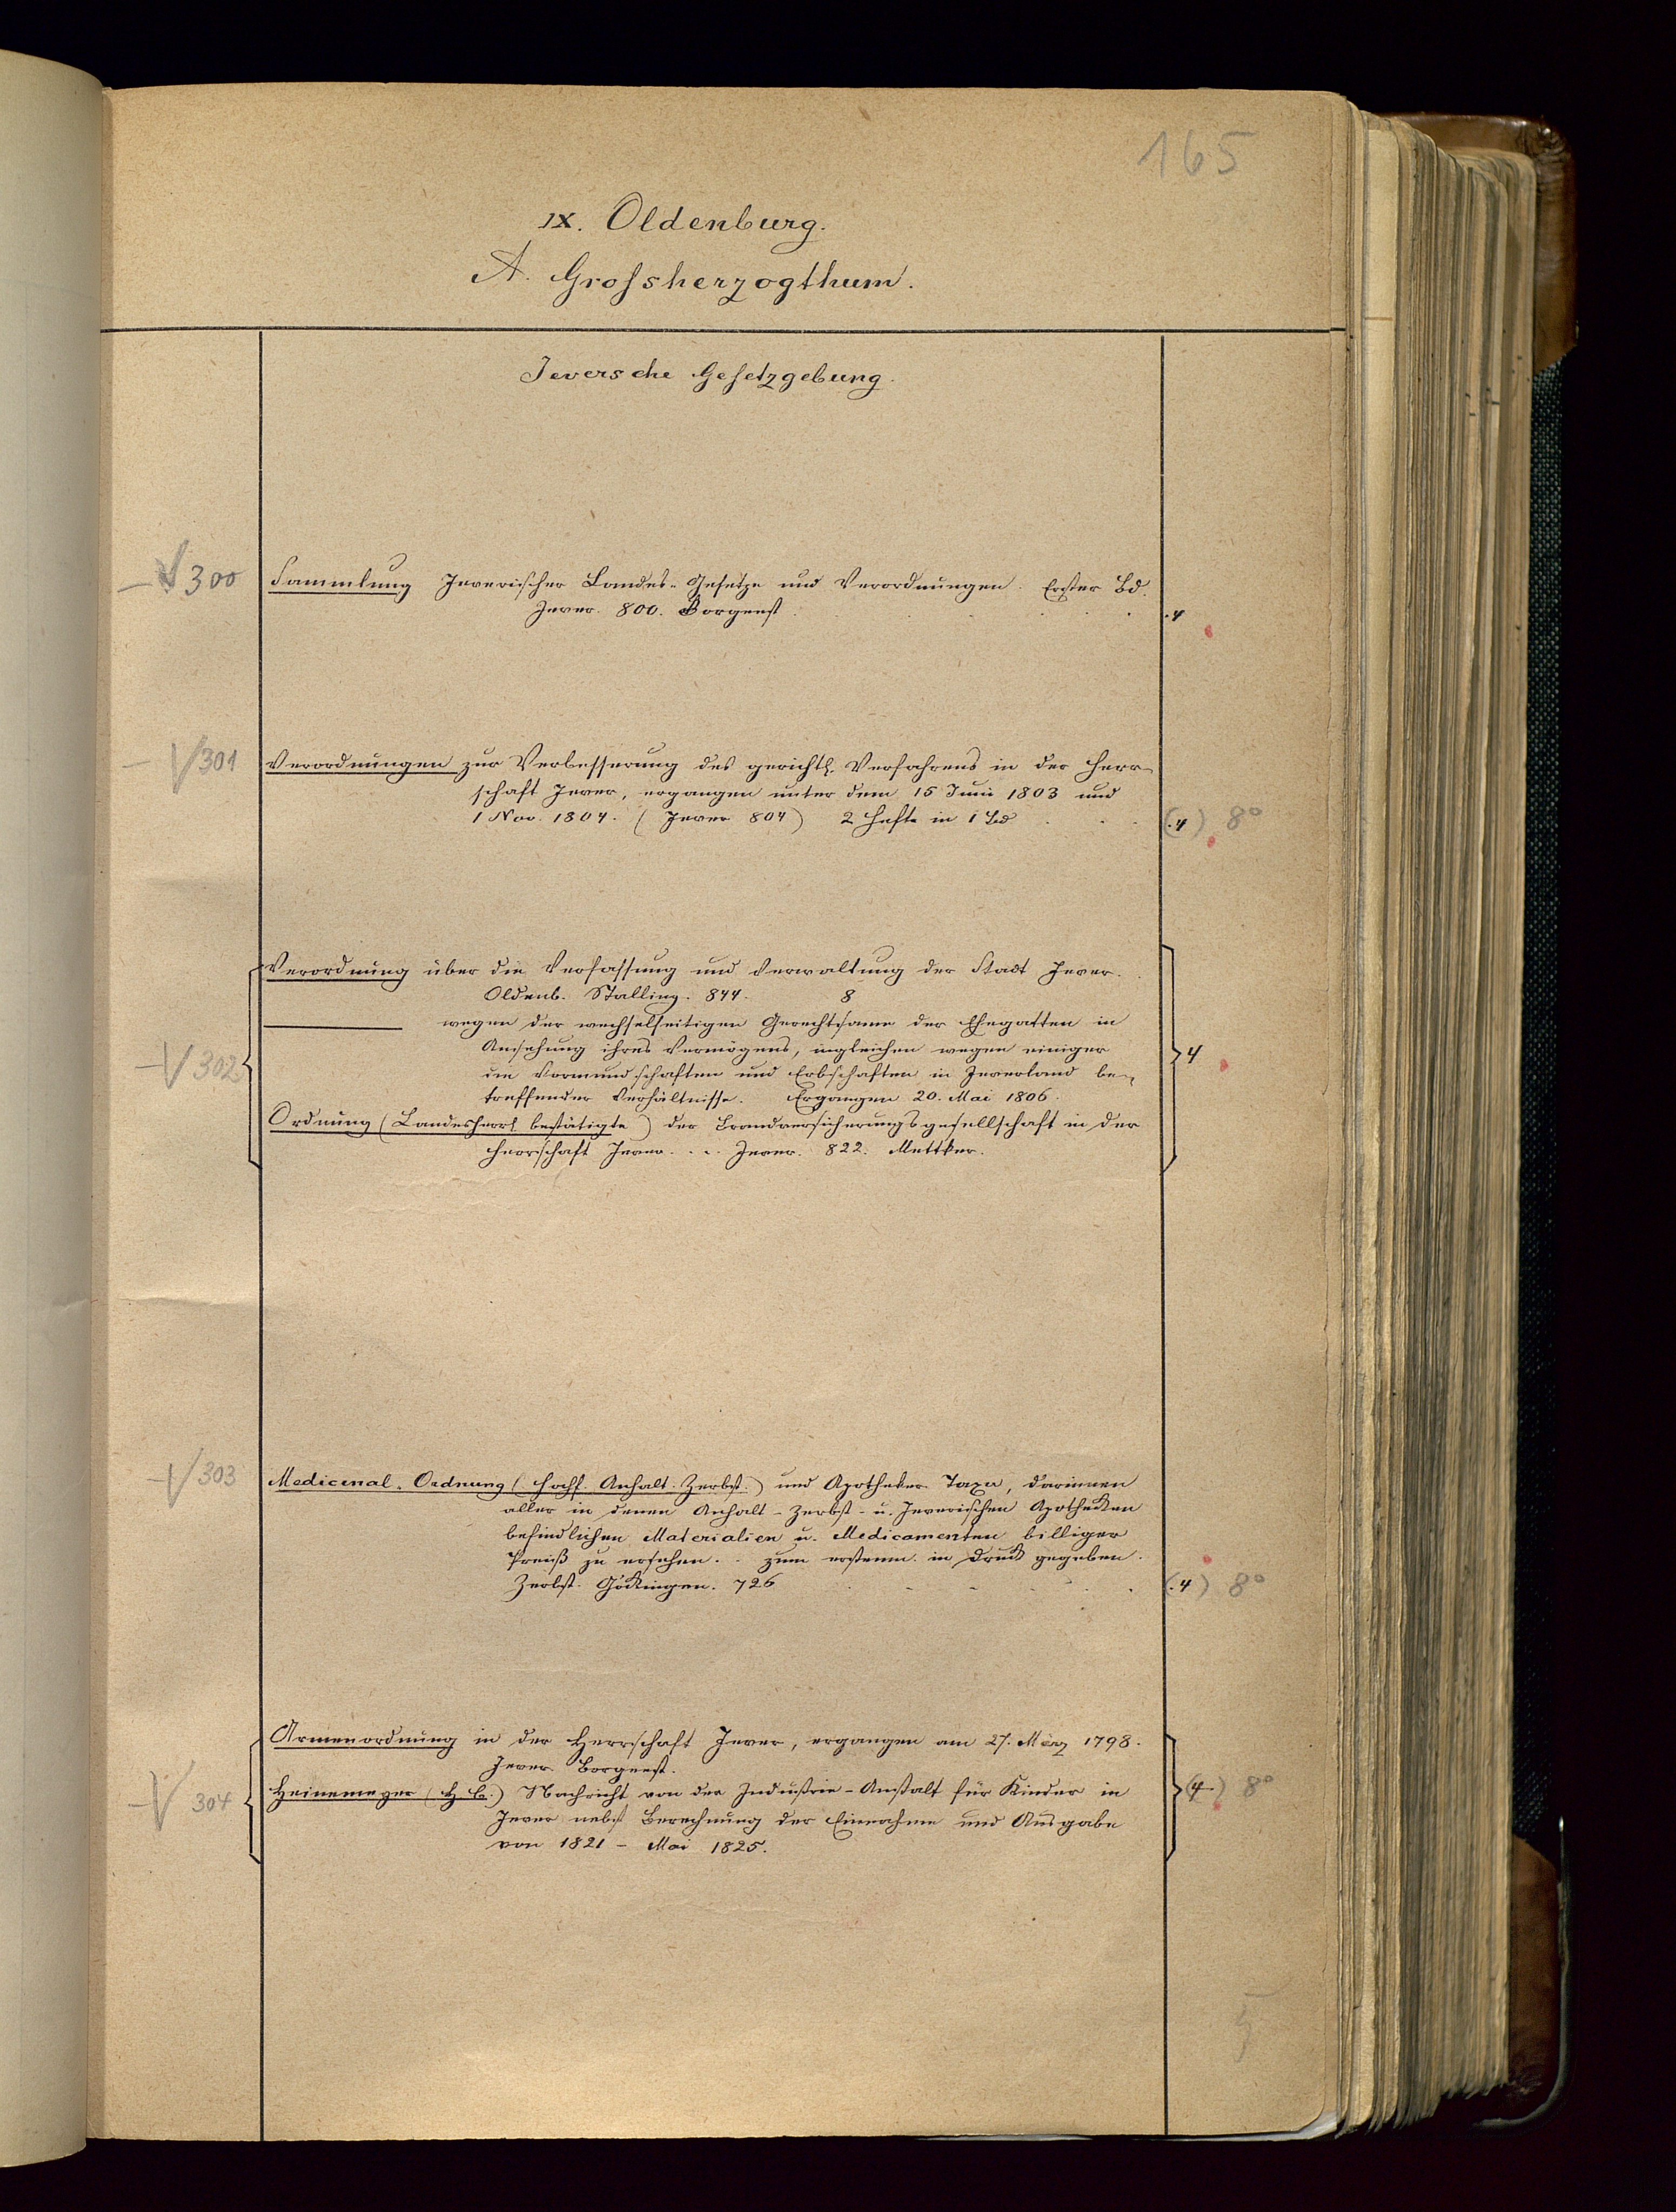 165
IX. Oldenburg.
A. Grossherzogthum.
Jeversche Gesetzgebung.
300 Sammlung Jeverischer Landes-Gesetze und Verordnungen. Erster Bd.
Jever. 800. Borgeest . . . . 4
301 Verordnungen zur Verbesserung des gerichtl. Verfahrens in der Herr-
schaft Jever, ergangen unter dem 15 Juni 1803 und
1 Nov. 1804. (Jever 804) 2 Hefte in 1 Bd . . . (4) 8°
Verordnung über die Verfassung und Verwaltung der Stadt Jever.
Oldenb. Stalling. 844. 8
——— wegen der wechselseitigen Gerechtsame der Ehegatten in
302 Ansehung ihres Vermögens, ingleichen wegen einiger 4
die Vormundschaften und Erbschaften in Jeverland be-
treffender Verhältnisse. Ergangen 20. Mai 1806.
Ordnung (Landesherrl. bestätigte) der Brandversicherungsgesellschaft in der
Herrschaft Jever. . . . Jever. 822. Mettker.
303 Medicinal-Ordnung (Hochf. Anhalt. Zerbst.) und Apotheker Taxa, darinnen
aller in denen Anhalt-Zerbst- u. Jeverischen Apotheken
befindlichen Materialien u. Medicamenten billiger
Preiß zu ersehen. . zum in Druck gegeben.
Zerbst. Göckingen. 726 . . . . (4) 8°
Armenordnung in der Herrschaft Jever, ergangen am 27. März 1798.
Jever Borgeest.
304 Heinemeyer (H. B.) Nachricht von der Industrie-Anstalt für Kinder in (4) 8°
Jever nebst Berechnung der Einnahme und Ausgabe
von 1821 – Mai 1825.
5